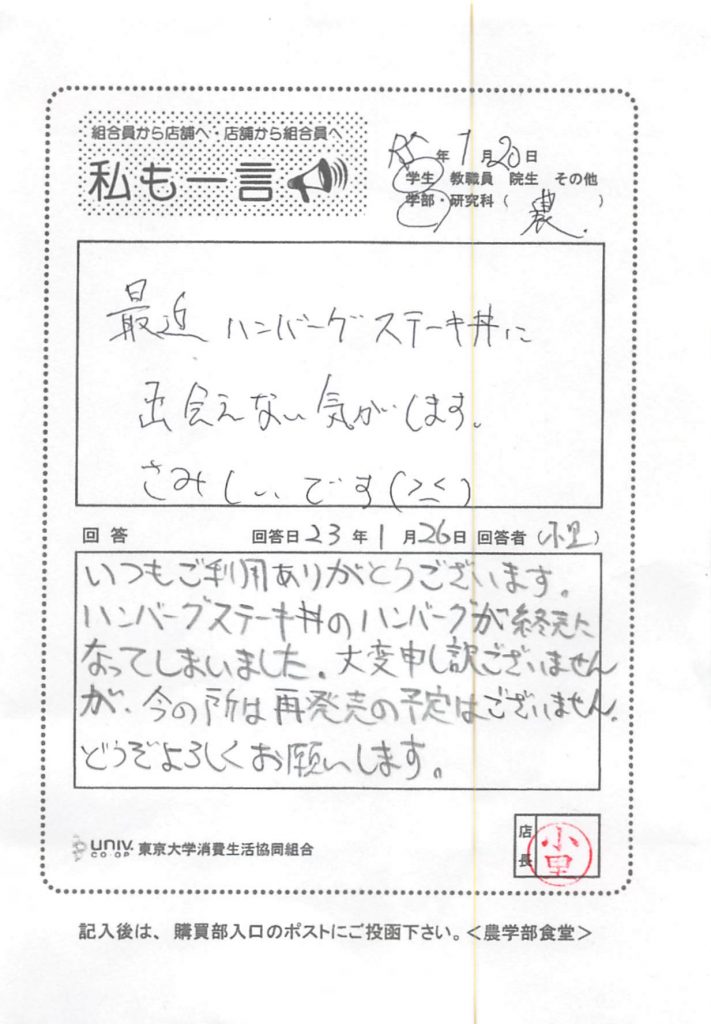 組合員から店舗へ・店舗から組合員へ
私も一言
R5年1月20日
学生 教職員 院生 その他
学部・研究科（ 農 ）
最近 ハンバーグステーキ丼に
出会えない気がします。
さみしいです(><)
回答 回答日23年1月26日 回答者(小里)
いつもご利用ありがとうございます。
ハンバーグステーキ丼のハンバーグが終売に
なってしまいました。大変申し訳ございません
が、今の所は再発売の予定はございません。
どうぞよろしくお願いします。
UNIV. CO-OP 東京大学消費生活協同組合
店長 小里
記入後は、購買部入口のポストにご投函下さい。＜農学部食堂＞